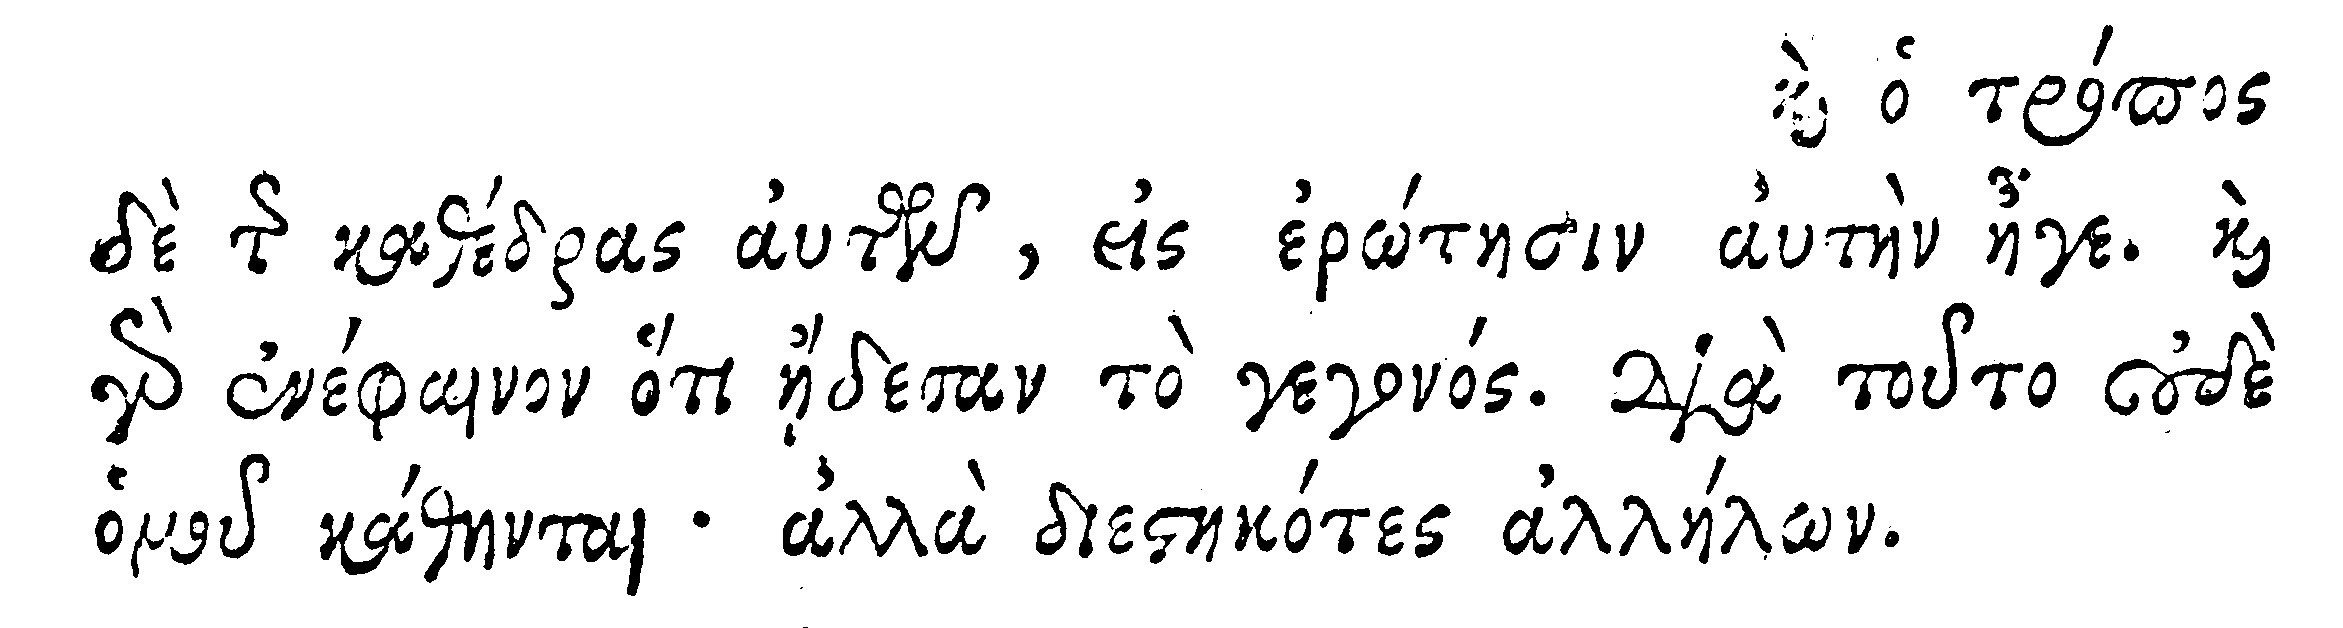 καὶ ὁ τρόπος
δὲ τῆς καθέδρας ἀυτῶν, εἰς ἐρώτησιν ἀυτὴν ἦγε. καὶ
γὰρ ἐνέφαινον ὅτι ᾔδεσαν τὸ γεγονός. διὰ τοῦτο οὐδὲ
ὁμοῦ κάθηνται· ἀλλὰ διεστηκότες ἀλλήλων.